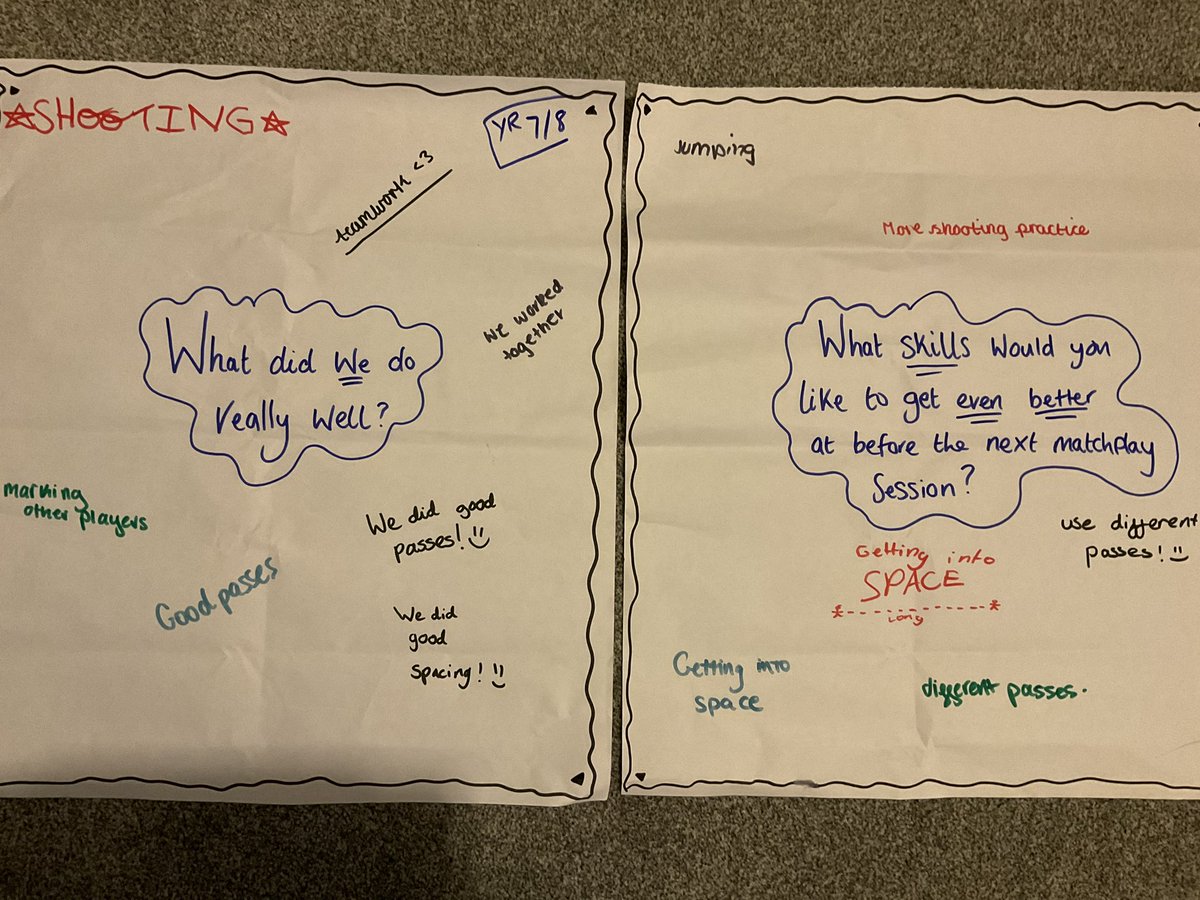 SHOOTING
YR 7/8
teamwork <3
We worked
together
What did we do
really well?
marking
other players
Good passes
We did good
passes!
We did
good
spacing!
Jumping
More shooting practice
What skills would you
like to get even better
at before the next matchplay
session?
use different
passes!
Getting into
SPACE
Getting into
space
different passes.